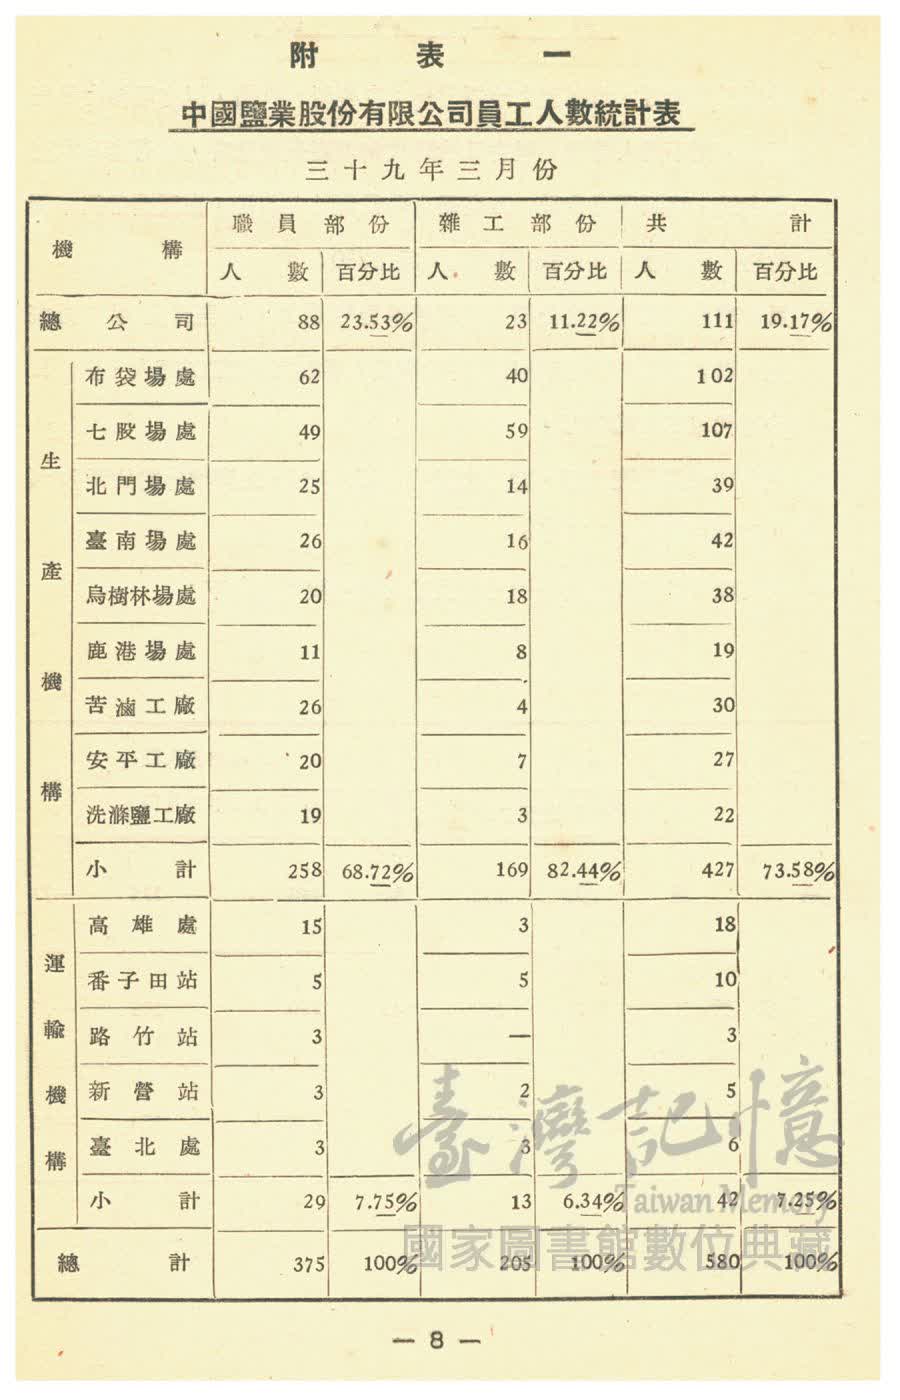 附表一
中國鹽業股份有限公司員工人數統計表
三十九年三月份
機構 職員部份 雜工部份 共計
人數 百分比 人數 百分比 人數 百分比
總公司 88 23.53% 23 11.22% 111 19.17%
生產機構
布袋場處 62 40 102
七股場處 49 59 107
北門場處 25 14 39
臺南場處 26 16 42
烏樹林場處 20 18 38
鹿港場處 11 8 19
苦滷工廠 26 4 30
安平工廠 20 7 27
洗滌鹽工廠 19 3 22
小計 258 68.72% 169 82.44% 427 73.58%
運輸機構
高雄處 15 3 18
番子田站 5 5 10
路竹站 3 — 3
新營站 3 2 5
臺北處 3 3 6
小計 29 7.75% 13 6.34% 42 7.25%
總計 375 100% 205 100% 580 100%
臺灣記憶
Taiwan Memory
國家圖書館數位典藏
— 8 —